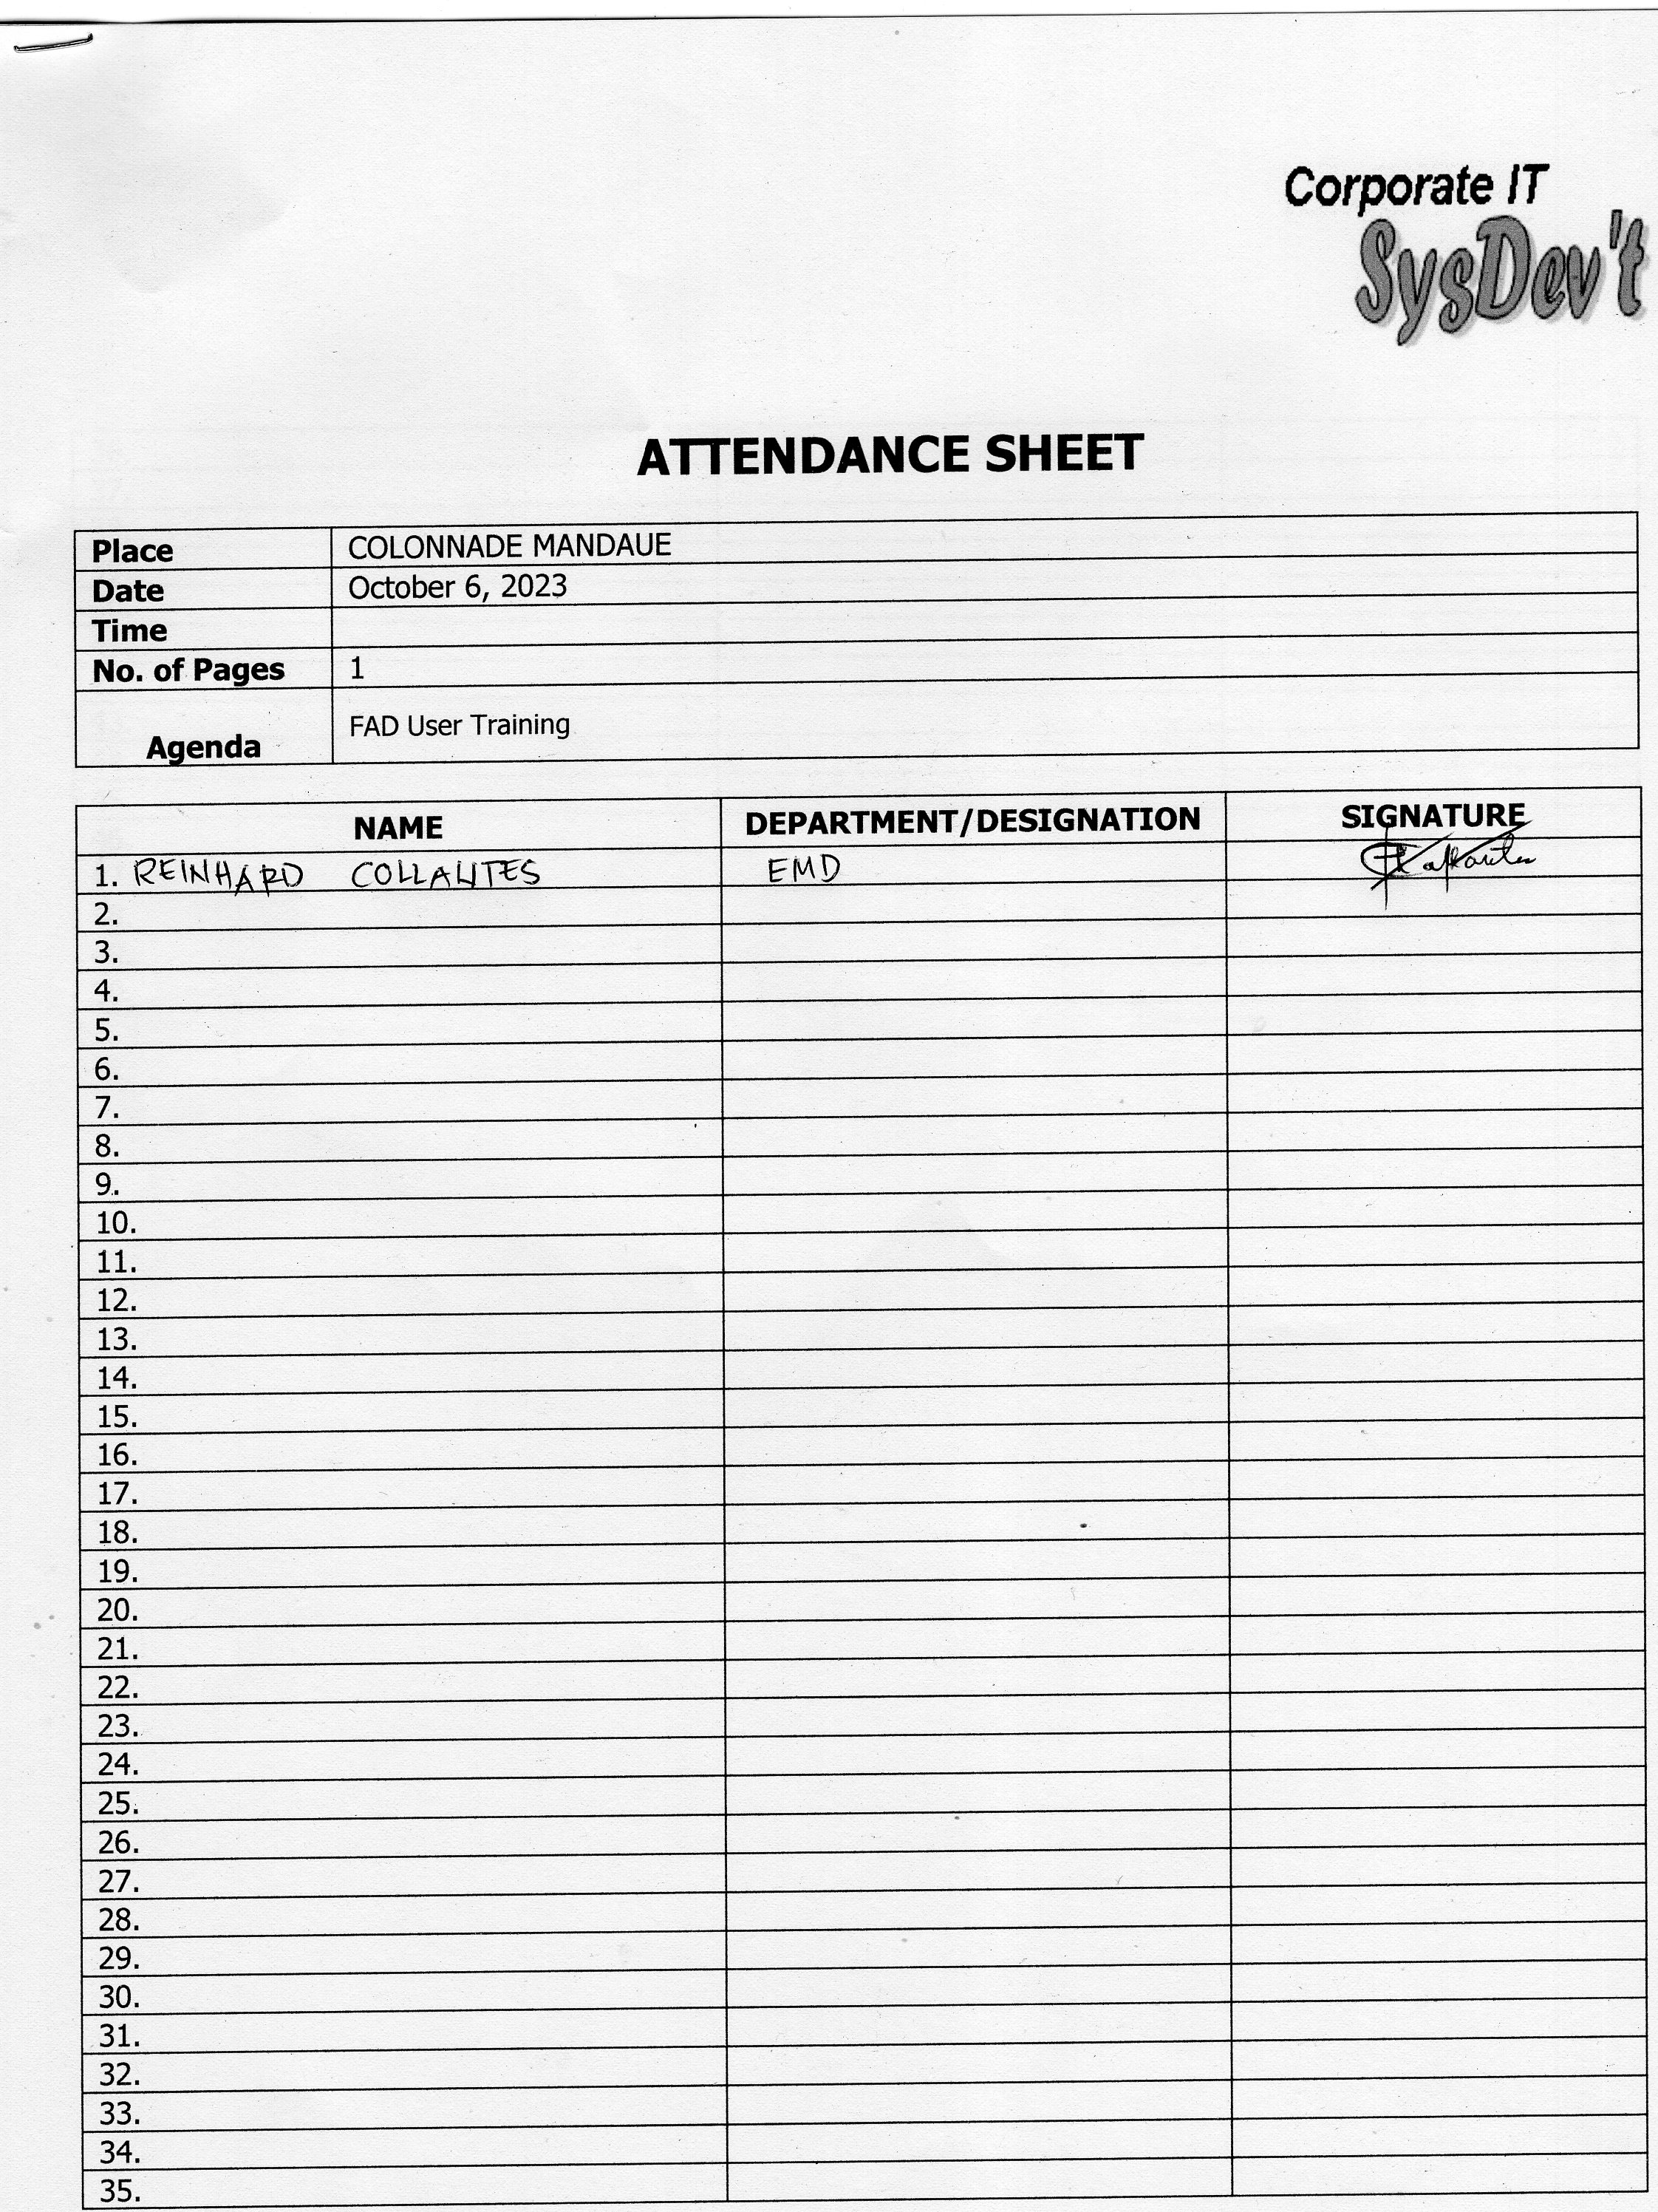 Corporate IT
SysDev't
ATTENDANCE SHEET
Place COLONNADE MANDAUE
Date October 6, 2023
Time
No. of Pages 1
Agenda FAD User Training
NAME DEPARTMENT/DESIGNATION SIGNATURE
1. REINHARD COLLANTES EMD
2.
3.
4.
5.
6.
7.
8.
9.
10.
11.
12.
13.
14.
15.
16.
17.
18.
19.
20.
21.
22.
23.
24.
25.
26.
27.
28.
29.
30.
31.
32.
33.
34.
35.